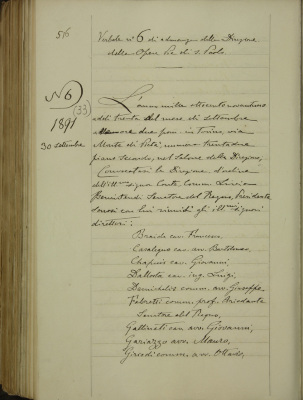 516
Verbale n° 6 di adunanza della Direzione
delle Opere Pie di S. Paolo
N 6
(33)
1891
30 settembre
L'anno mille ottocento novantuno
addì trenta del mese di settembre
alle ore due pom. in Torino, via
Monte di Pietà, numero trentadue
piano secondo, nel Salone della Direzione,
Convocatasi la Direzione d'ordine
dell'Ill.mo signor Conte Comm. Luigi
Senatore del Regno, Presidente
sonosi con lui riuniti gli ill. signori
direttori:
Braida cav. Francesco,
Casalegno cav. avv. Bartolomeo,
Chapuis cav. Giovanni,
Dallosta cav. ing. Luigi,
Demichelis comm. avv. Giuseppe,
Fabretti comm. prof. Ariodante
Senatore del Regno,
Gallinati cav. avv. Giovanni,
Gariazzo avv. Mauro,
Giriodi comm. avv.